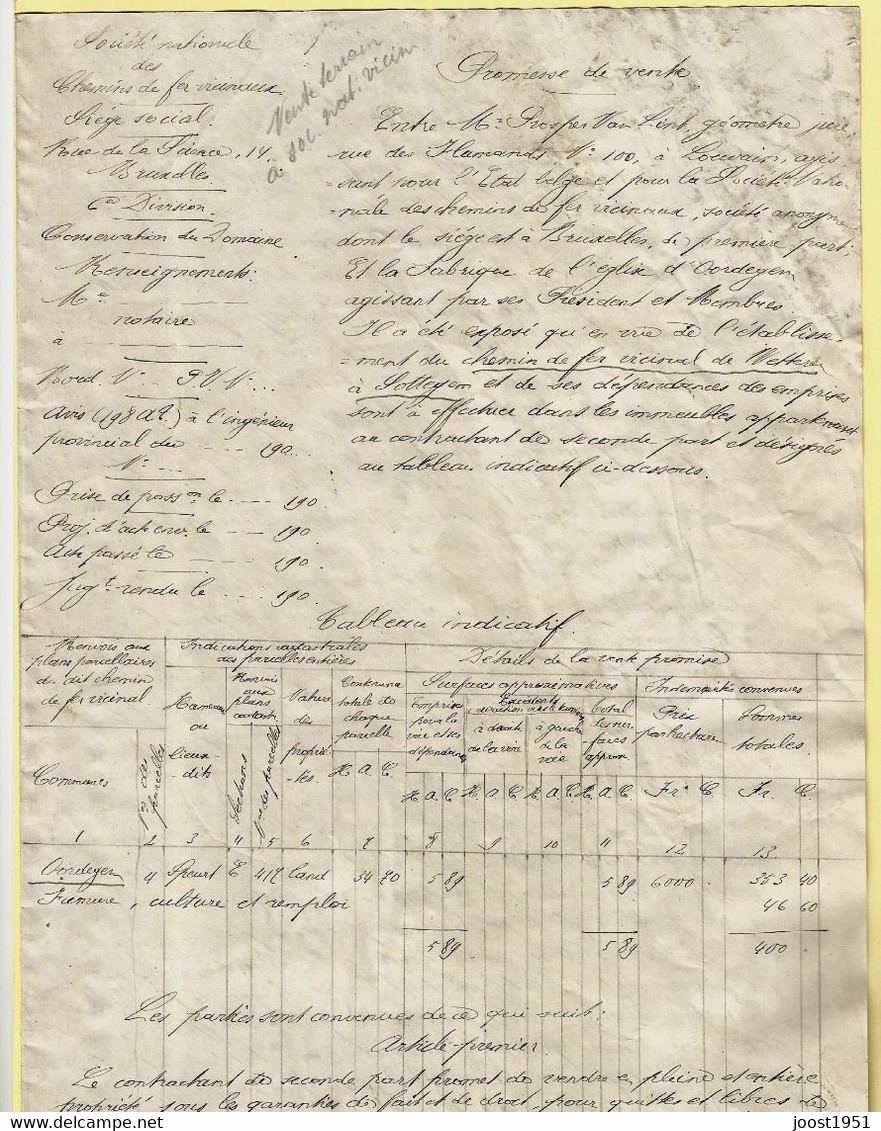 Société nationale
des
Chemins de fer vicinaux
Siége social.
Rue de la Science, 14.
Bruxelles.
6e Division.
Conservation du Domaine
Renseignements:
Me
notaire
à
Bord. No ... P.V. No ...
Avis (198 A2.) à l'ingénieur
provincial du ---- 190..
No ...
Prise de poss on le ---- 190.
Proj. d'acte env. le ---- 190.
Acte passé le ---- 190.
Jugt. rendu le .... 190.
Vente terrain
à soc. nat. vicin
Promesse de vente
Entre Mr Prosper Van Lint géomètre juré,
rue des Flamands No 100, à Louvain, agis
=sant pour l'Etat belge et pour la Société Natio
=nale des chemins de fer vicinaux, société anonyme
dont le siége est à Bruxelles, de première part;
Et la Fabrique de l'eglise d'Oordegem
agissant par ses Président et Membres.
Il a été exposé qu'en vue de l'établisse-
=ment du chemin de fer vicinal de Wetteren
à Sottegem et de ses dépendances des emprises
sont à effectuer dans les immeubles appartenant
au contractant de seconde part et désignés
au tableau indicatif ci-dessous.
Tableau indicatif.
Renvois aux
plans parcellaires
du dit chemin
de fer vicinal
Indications cadastrales
des parcelles entières
Détails de la vente promise
Communes
Nos des parcelles
Hameaux
ou
lieux-
-dits
Renvois
aux
plans
cadast.
Sections
Nos des parcelles
Nature
des
proprié-
-tés.
Contenance
totale de
chaque
parcelle
H. A. C.
Surfaces approximatives
Emprises
pour la
voie et ses
dépendances
Excédents
à droite
de la voie
à gauche
de la
voie
Total
des sur-
faces
approx.
H. A. C. H. A. C H. A. C H. A. C.
Indemnités convenues
Prix
par hectare
Sommes
totales.
Fr. C Fr. C.
1 2 3 4 5 6 7 8 9 10 11 12 13
Oordegem 4 Speurt E 417 land 54 70 5 89 5 89 6000 . 353 40
Fumure, culture et remploi 46 60
5 89 5 89 400 .
Les parties sont convenues de ce qui suit:
Article-premier.
Le contractant de seconde part promet de vendre en pleine et entière
propriété sous les garanties de fait et de droit, pour quittes et libres de
joost1951